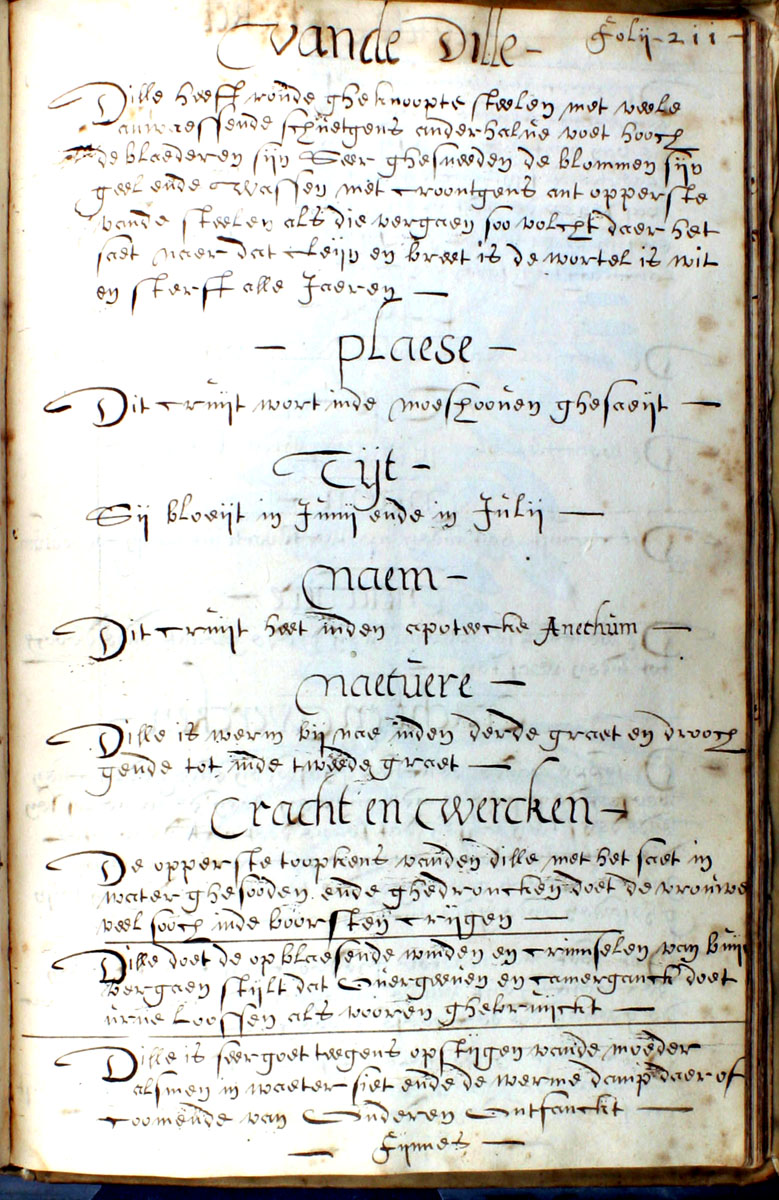 vande Dille - Folij - 211 -
Dille heeft ronde gheknoopte steelen met veele
auwaessende schuetgens anderhalve voet hooch
de blaederen sijn Seer ghesneeden de blommen sijn
geel ende Wassen met croontgens ant opperste
vande steelen als die vergaen soo volcht daer het
saet naer dat cleijn en breet is de wortel is wit
en sterft alle Jaeren —
— plaese —
Dit cruijt wort inde moeshooven ghesaeijt —
Tijt -
Sij bloeijt in Junij ende in Julij —
Naem -
Dit cruijt heet inden apoteecke Anethum —
Naetuere —
Dille is werm bij nae inden derde graet en drooch
gende tot inde tweede graet —
Cracht en Wercken -
De opperste toopkens vanden dille met het saet in
water ghesooden ende ghedroncken doet de vrouwe
veel sooch inde boorsten crijgen —
Dille doet de opblaesende winden en crimselen van buijc
vergaen stijlt dat Overgeeven en camerganck doet
urine Loossen als vooren ghebruijckt —
Dille is seer goet teegens opstijgen vande moeder
alsmen in waeter siet ende de werme damp daer of
coomende van Onderen Ontfanckt —
— Fijnnes —